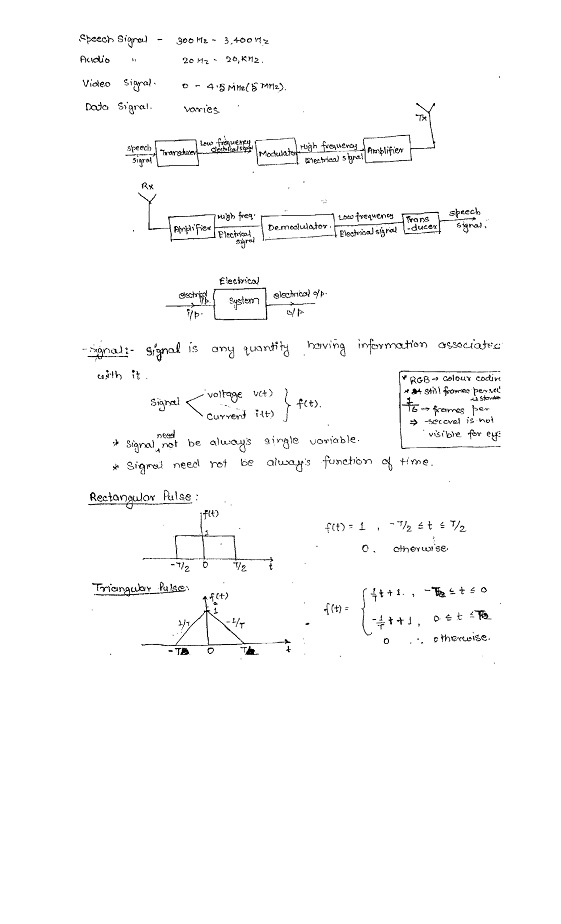 Speech Signal - 300 Hz - 3,400 Hz
Audio " 20 Hz - 20,KHz.
Video Signal. 0 - 4.5 MHz (5 MHz).
Data Signal. varies
Tx
speech signal Transducer Low frequency electrical signal Modulator High frequency Electrical signal Amplifier
Rx
Amplifier High freq. Electrical signal Demodulator. Low frequency Electrical signal Trans-ducer speech signal.
Electrical
electrical i/p. System electrical o/p. o/p.
Signal:- Signal is any quantity having information associated
with it.
Signal voltage v(t) current i(t) } f(t).
* RGB → colour codin
* still frames per
1/16 → frames per
⇒ second is not
visible for eye
* Signal need not be always single variable.
* Signal need not be always function of time.
Rectangular Pulse:
f(t)
1
-T/2 0 T/2 t
f(t) = 1 , -T/2 ≤ t ≤ T/2
0. otherwise.
Triangular Pulse:
f(t)
1
1/T -1/T
-T 0 T t
f(t) = { 1/T t + 1. , -T ≤ t ≤ 0
-1/T t + 1 , 0 ≤ t ≤ T
0 ∴ otherwise.